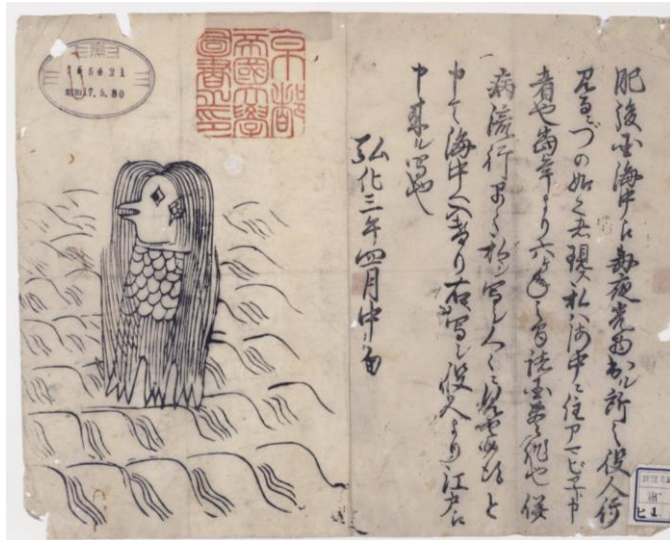 肥後国海中え毎夜光物出ル所之役人行
見るニづの如く者現ス私ハ海中ニ住アマビヱト申
者也当年より六ヶ年之間諸国豊作也併
病流行早々私シ写シ人々ニ見セ候得と
申て海中へ入けり右写シ役人より江戸え
申来ル写也
弘化三年四月中旬
京都
帝國大學
圖書之印
17.5.30
ヒ 1